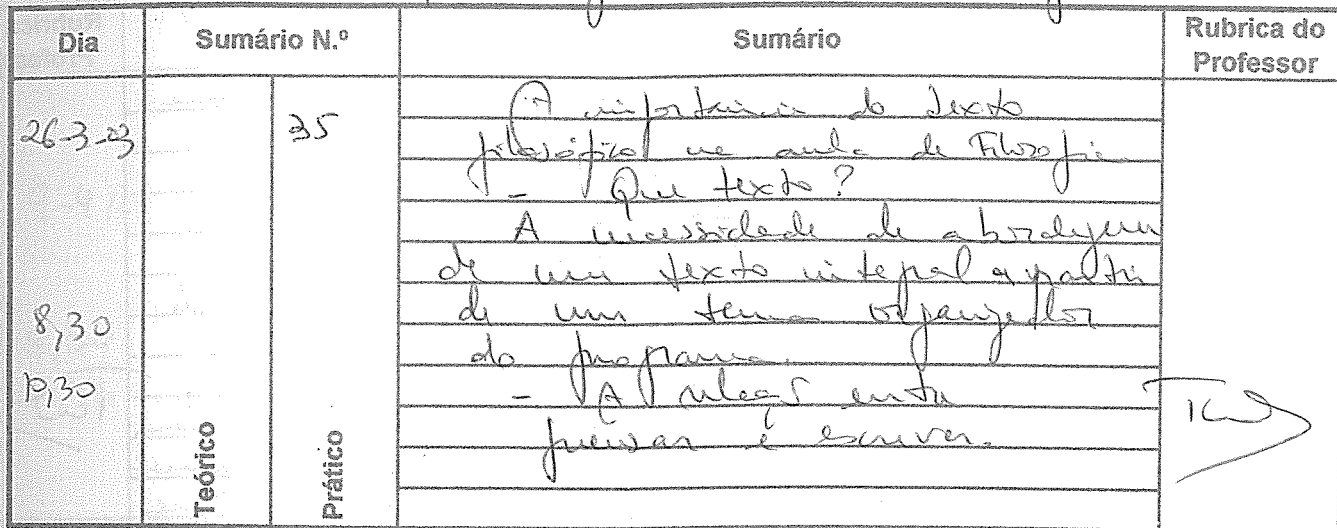 Dia Sumário N.º Sumário Rubrica do Professor
26-3-23 35 A importância do texto
filosófico na aula de Filosofia
- Que texto?
A necessidade de abordagem
de um texto integral a partir
8,30 de um tema organizador
do programa.
10,30 - A relação entre
pensar e escrever.
Teórico Prático